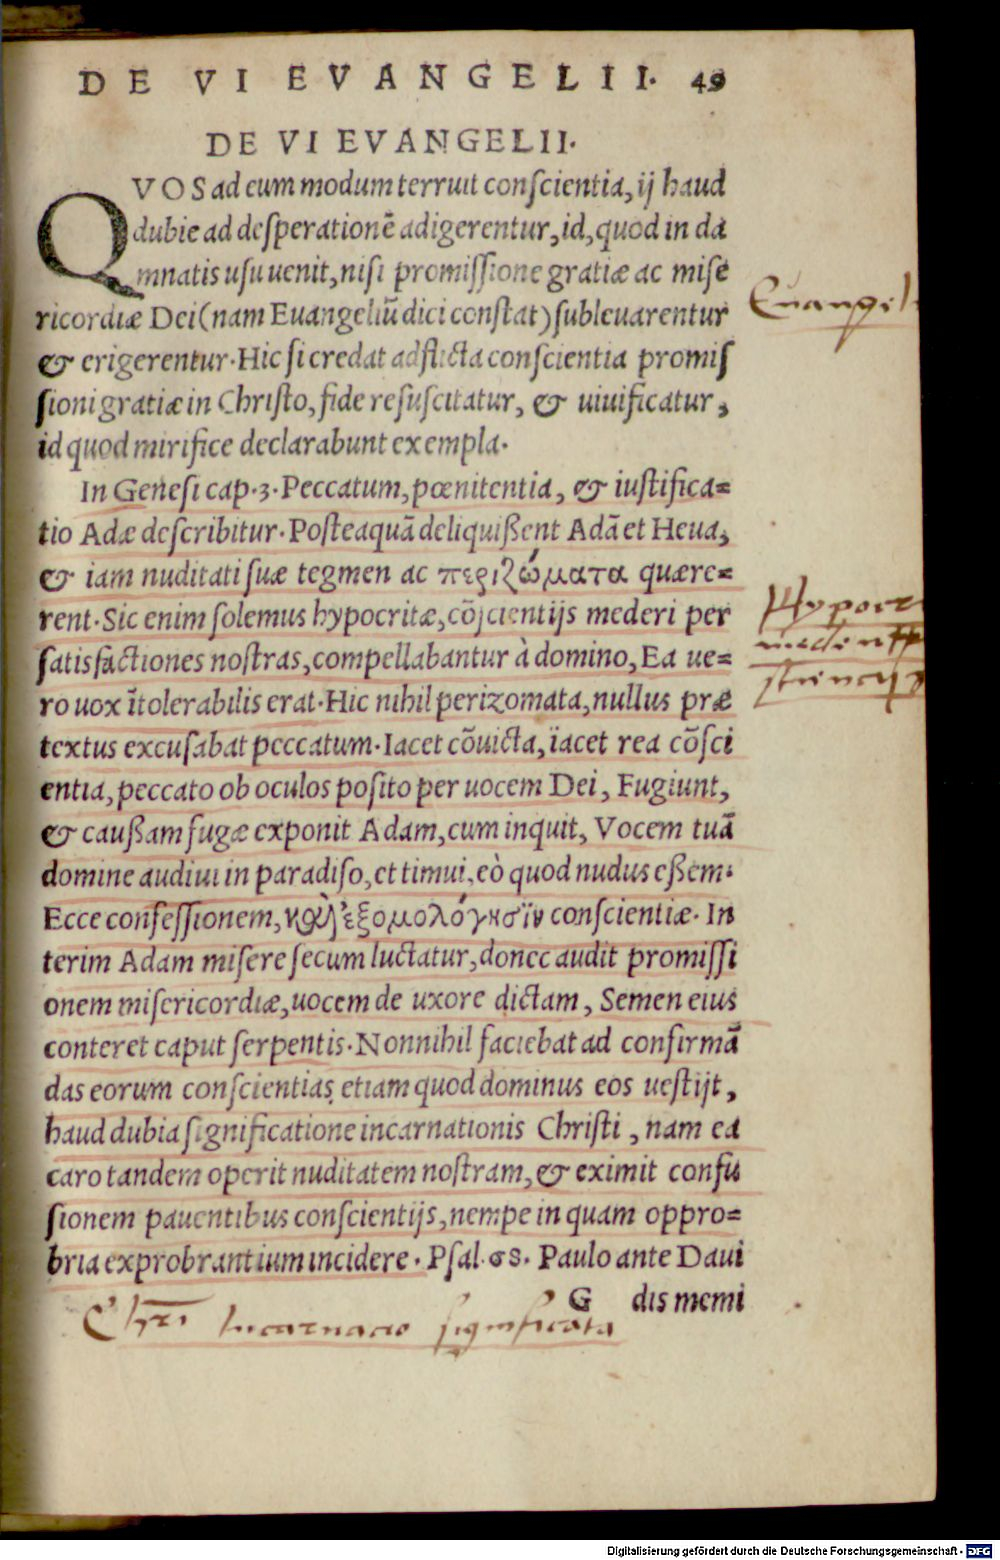 DE VI EVANGELII. 49
DE VI EVANGELII.
QVOS ad eum modum terruit conscientia, ij haud
dubie ad desperationẽ adigerentur, id, quod in da
mnatis usu uenit, nisi promissione gratiæ ac mise
ricordiæ Dei (nam Euangeliũ dici constat) subleuarentur
& erigerentur. Hic si credat adflicta conscientia promis
sioni gratiæ in Christo, fide resuscitatur, & uiuificatur,
id quod mirifice declarabunt exempla.
In Genesi cap. 3. Peccatum, pœnitentia, & iustifica=
tio Adæ describitur. Posteaquã deliquißent Adã et Heua,
& iam nuditati suæ tegmen ac περιζώματα quære=
rent. Sic enim solemus hypocritæ, cõscientijs mederi per
satisfactiones nostras, compellabantur à domino, Ea ue=
ro uox ĩtolerabilis erat. Hic nihil perizomata, nullus præ
textus excusabat peccatum. Iacet cõuicta, iacet rea cõsci
entia, peccato ob oculos posito per uocem Dei, Fugiunt,
& caußam fugæ exponit Adam, cum inquit, Vocem tuã
domine audiui in paradiso, et timui, eò quod nudus eßem.
Ecce confessionem, καὶ ἐξομολόγησιν conscientiæ. In
terim Adam misere secum luctatur, donec audit promissi
onem misericordiæ, uocem de uxore dictam, Semen eius
conteret caput serpentis. Nonnihil faciebat ad confirmã
das eorum conscientias, etiam quod dominus eos uestijt,
haud dubia significatione incarnationis Christi, nam ea
caro tandem operit nuditatem nostram, & eximit confu
sionem pauentibus conscientijs, nempe in quam oppro=
bria exprobrantium incidere. Psal. 68. Paulo ante Daui
G dis memi
Euangeli
Hypocr
Chri Incarnacio significata
Digitalisierung gefördert durch die Deutsche Forschungsgemeinschaft - DFG